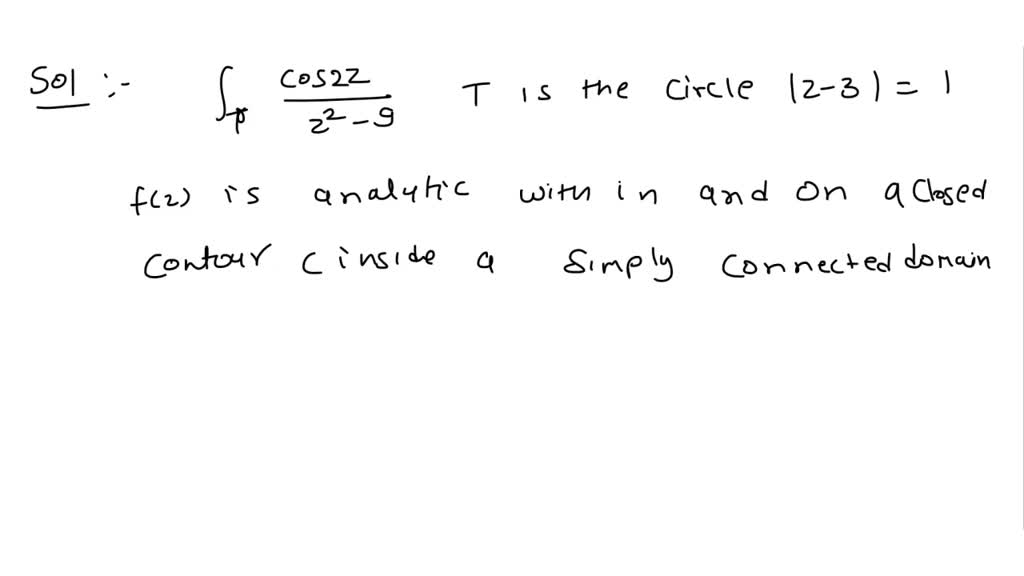 Sol :- ∫_p cos2z / z² - 9 T is the circle |z-3| = 1
f(z) is analytic with in and on a closed
contour C inside a simply connected domain